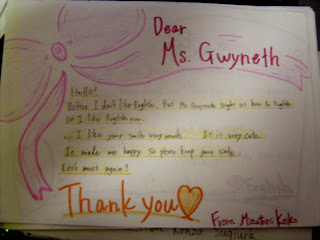 Dear
Ms. Gwyneth
Hello!
Before I don't like English, But Ms Gwyneth taught us how to English.
so I like English now.
I like your smile very much. It is very cute.
It made me happy. so please keep your smile.
Let's meet again!
Thank you
From
Kenzo Sugiura